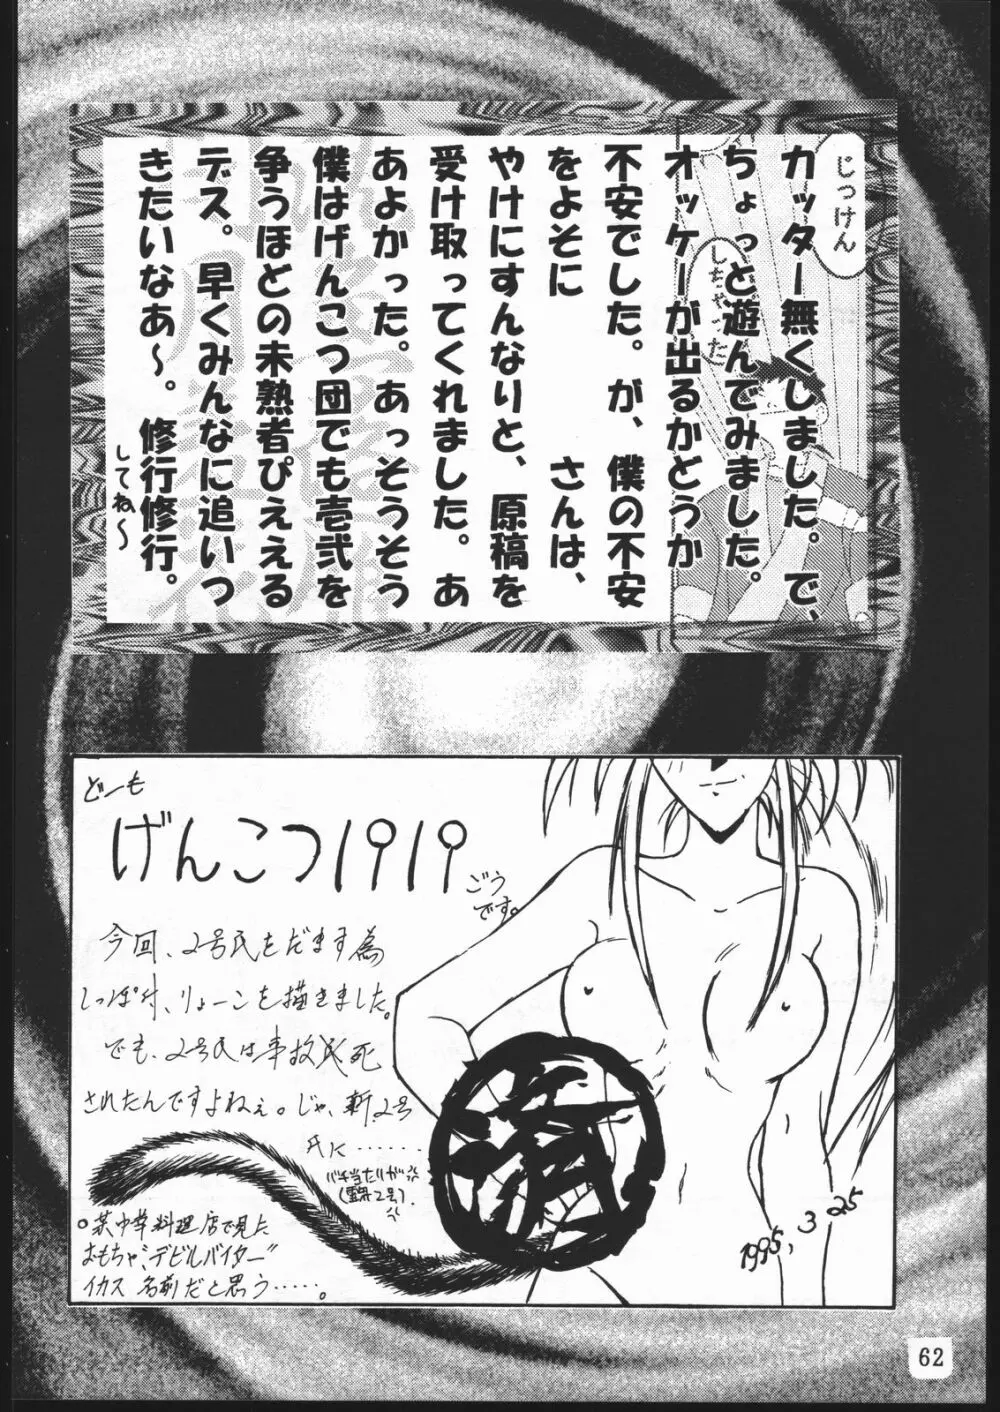 じっけん
しちゃった
カッター無くしました。で、
ちょっと遊んでみました。
オッケーが出るかどうか
不安でした。が、僕の不安
をよそに　　　さんは、
やけにすんなりと、原稿を
受け取ってくれました。あ
あよかった。あっそうそう
僕はげんこつ団でも壱弐を
争うほどの未熟者ぴええる
デス。早くみんなに追いつ
きたいなあ～。修行修行。
してね～
どーも
げんこつ1919
ごう
です。
今回、2号氏をだます為
しっぽ付、りょーこを描きました。
でも、2号氏は事故死
されたんですよねぇ。じゃ、新2号
氏に……
バチ当たりが
(霊界2号)
。某中華料理店で見た
おもちゃ“デビルバイター”
イカス名前だと思う……。
済
1995,3 25
62